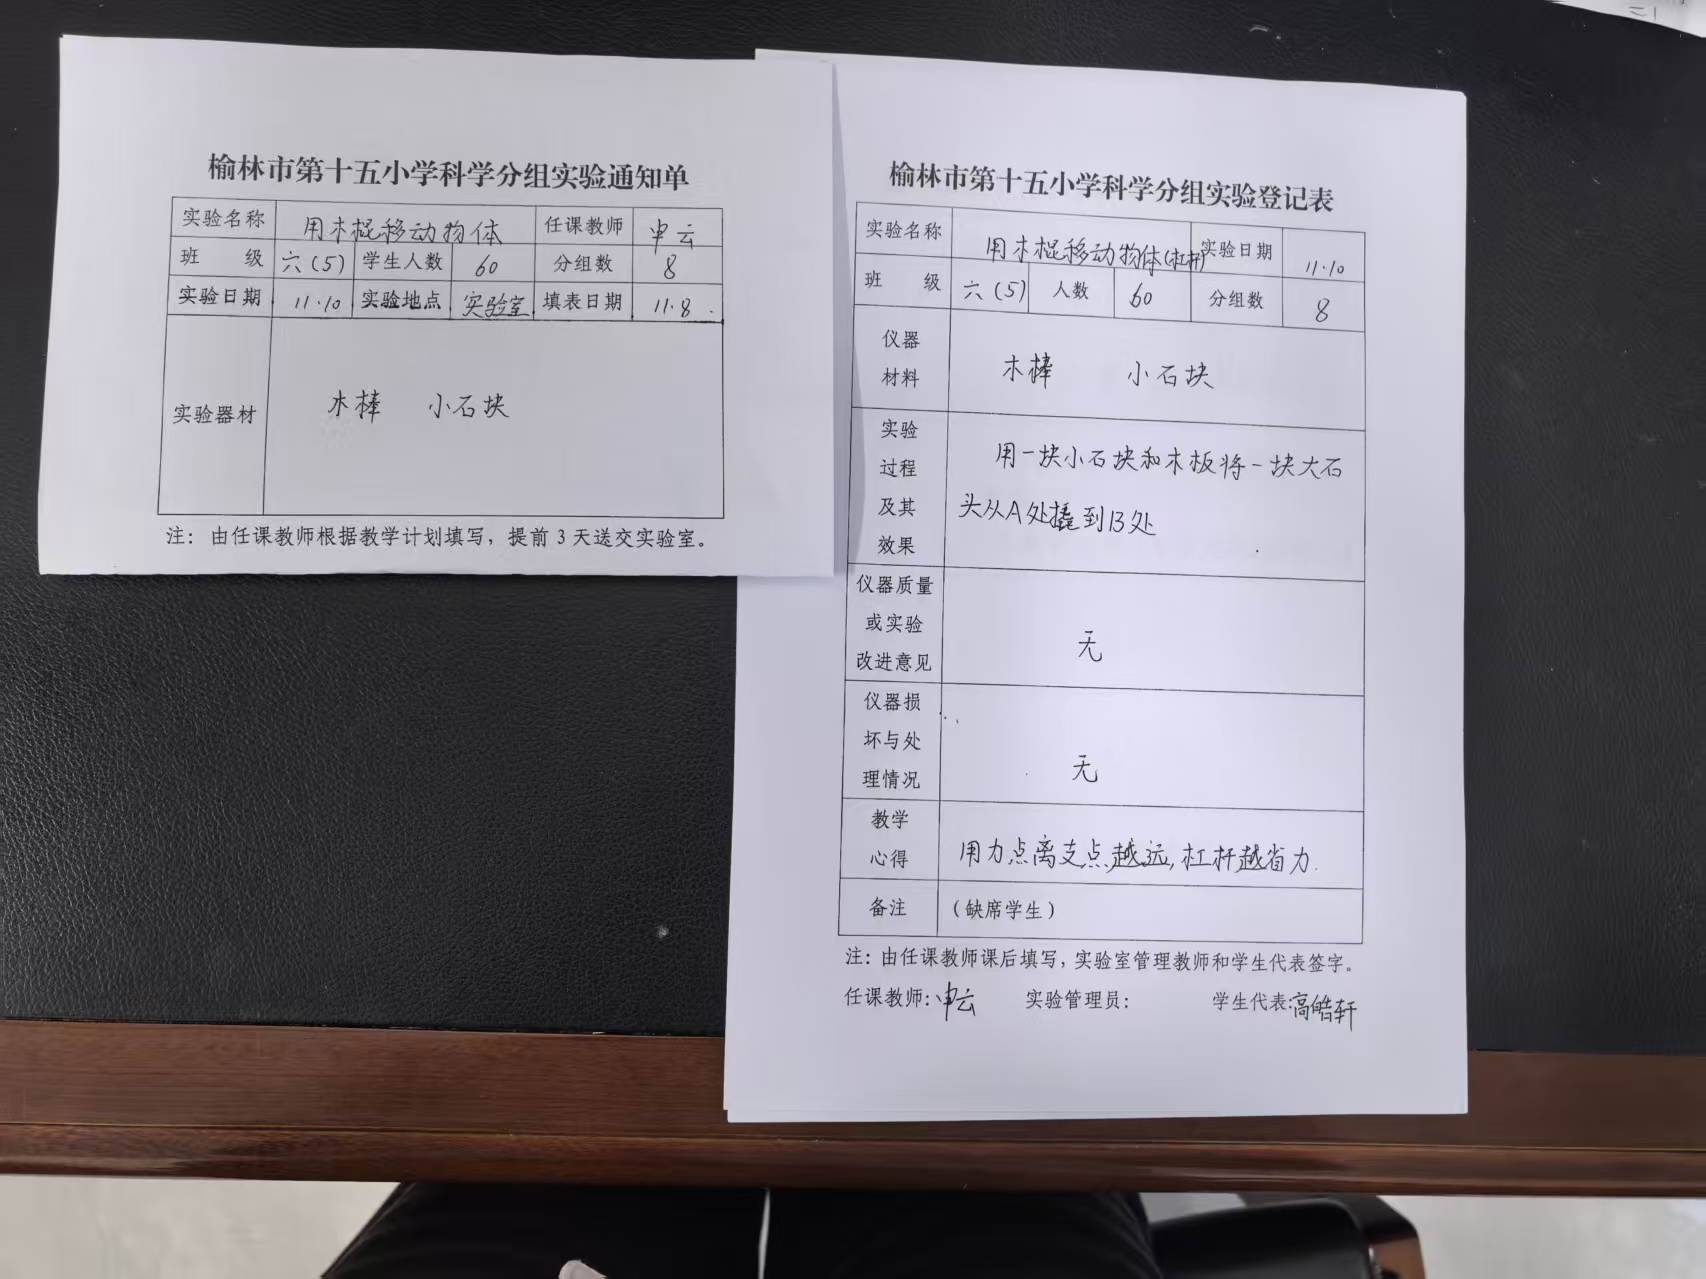 榆林市第十五小学科学分组实验通知单
实验名称 用木棍移动物体 任课教师 申云
班 级 六(5) 学生人数 60 分组数 8
实验日期 11·10 实验地点 实验室 填表日期 11·8
实验器材 木棒 小石块
注：由任课教师根据教学计划填写，提前3天送交实验室。
榆林市第十五小学科学分组实验登记表
实验名称 用木棍移动物体(杠杆) 实验日期 11·10
班 级 六(5) 人数 60 分组数 8
仪器
材料
木棒 小石块
实验
过程
及其
效果
用一块小石块和木板将一块大石
头从A处撬到B处
仪器质量
或实验
改进意见
无
仪器损
坏与处
理情况
无
教学
心得
用力点离支点越远,杠杆越省力.
备注 (缺席学生)
注：由任课教师课后填写，实验室管理教师和学生代表签字。
任课教师:申云 实验管理员: 学生代表:高皓轩